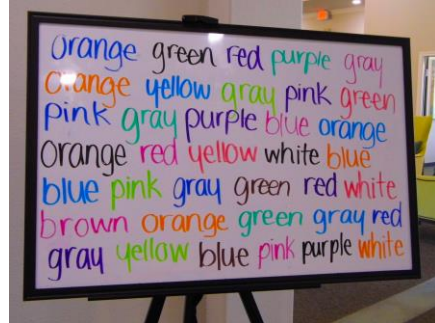 orange green red purple gray
orange yellow gray pink green
pink gray purple blue orange
orange red yellow white blue
blue pink gray green red white
brown orange green gray red
gray yellow blue pink purple white